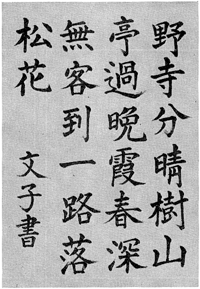 野寺分晴樹山
亭過晩霞春深
無客到一路落
松花
文子書